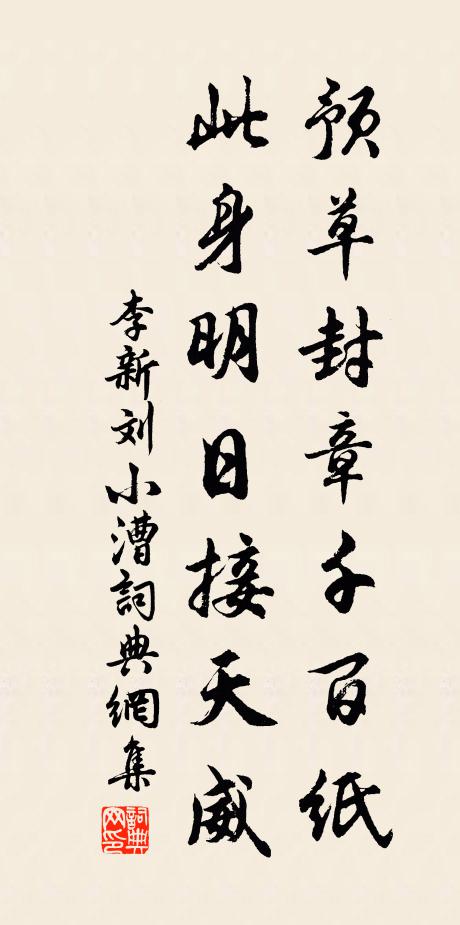 预草封章千百纸
此身明日接天威
李新刘小漕詞典網集
詞典网印